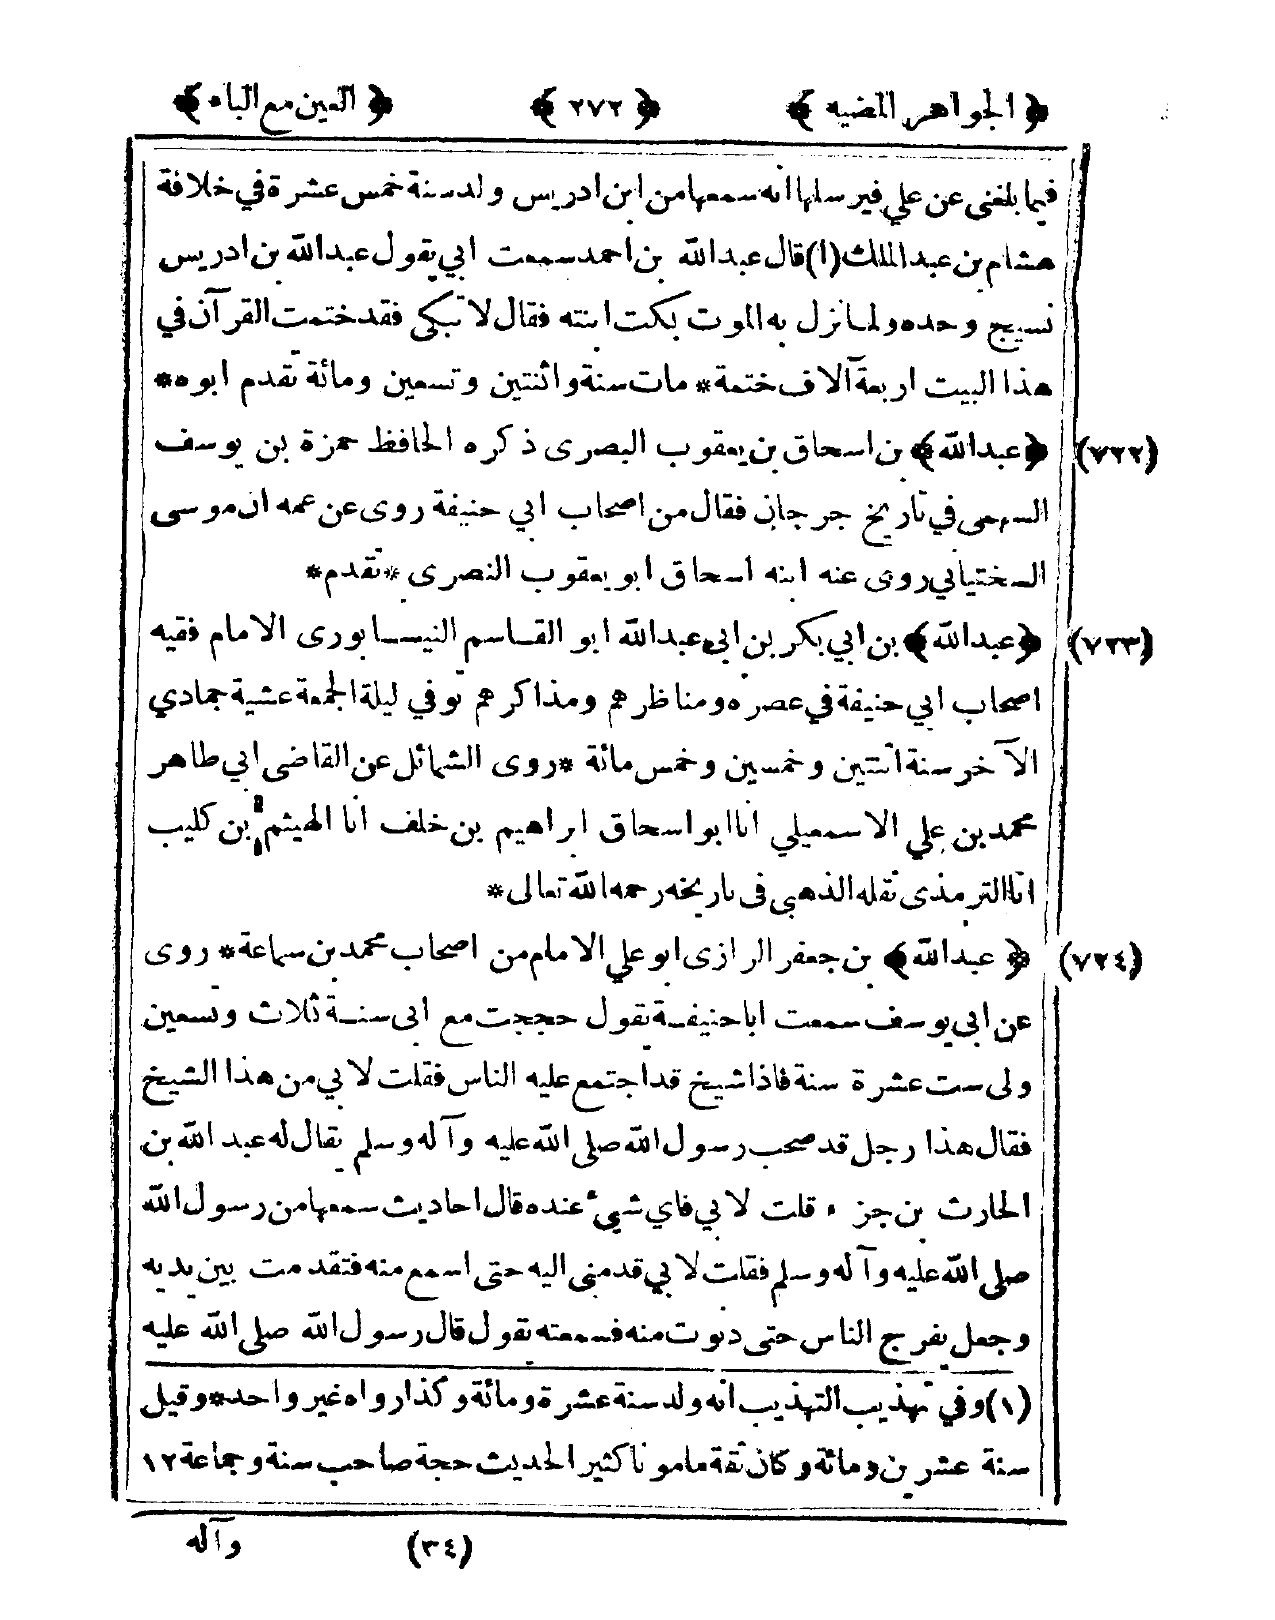 ﴿ الجواهر المضيه ﴾ ﴿ ٢٧٢ ﴾ ﴿ العين مع الباء ﴾
فيما بلغنى عن علي فيرسلها انه سمعها من ابن ادريس ولد سنة خمس عشرة في خلافة
هشام بن عبد الملك (١) قال عبد الله بن احمد سمعت ابي يقول عبد الله بن ادريس
نسيج وحده ولما نزل به الموت بكت ابنته فقال لا تبكي فقد ختمت القرآن في
هذا البيت اربعة آلاف ختمة * مات سنة واثنتين وتسعين ومائة تقدم ابوه *
(٧٢٢) ﴿ عبد الله ﴾ بن اسحاق بن يعقوب البصرى ذكره الحافظ حمزة بن يوسف
السهمى في تاريخ جرجان فقال من اصحاب ابي حنيفة روى عن عمه ان موسى
السختياني روى عنه ابنه اسحاق ابو يعقوب النصرى * تقدم *
(٧٢٣) ﴿ عبد الله ﴾ بن ابي بكر بن ابي عبد الله ابو القاسم النيسابورى الامام فقيه
اصحاب ابي حنيفة في عصره ومناظرهم ومذاكرهم توفي ليلة الجمعة عشية جمادي
الآخر سنة اثنتين وخمسين وخمس مائة * روى الشمائل عن القاضى ابي طاهر
محمد بن علي الاسمعيلي انا ابو اسحاق ابراهيم بن خلف انا الهيثم بن كليب
انا الترمذى نقله الذهبي فى تاريخه رحمه الله تعالى *
(٧٢٤) ﴿ عبد الله ﴾ بن جعفر الرازى ابو علي الامام من اصحاب محمد بن سماعة * روى
عن ابي يوسف سمعت ابا حنيفة يقول حججت مع ابى سنة ثلاث وتسعين
ولى ست عشرة سنة فاذا شيخ قد اجتمع عليه الناس فقلت لا بي من هذا الشيخ
فقال هذا رجل قد صحب رسول الله صلى الله عليه وآله وسلم يقال له عبد الله بن
الحارث بن جزء قلت لا بي فاي شيئ عنده قال احاديث سمعها من رسول الله
صلى الله عليه وآله وسلم فقلت لا بي قدمنى اليه حتى اسمع منه فتقدمت بين يديه
وجعل يفرج الناس حتى دنوت منه فسمعته يقول قال رسول الله صلى الله عليه
(١) وفي تهذيب التهذيب انه ولد سنة عشرة ومائة وكذا رواه غير واحد * وقيل
سنة عشرين ومائة وكان ثقة مامونا كثير الحديث حجة صاحب سنة وجماعة ١٢
(٣٤) وآله